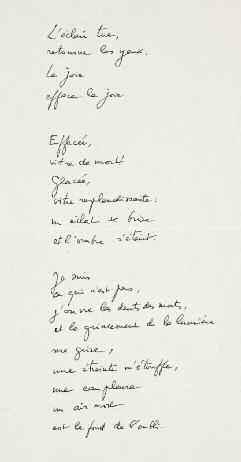 L'éclair tue,
retourne les yeux.
La joie
efface la joie
Effacée,
vitre de mort!
Glacée,
vitre resplendissante:
un éclat se brise
et l'ombre s'éteint.
Je suis
ce qui n'est pas,
j'ouvre les dents des morts,
et le grincement de la lumière
me grise,
une étreinte m'étouffe,
une eau pleure
un air mord
est le fond de l'oubli.